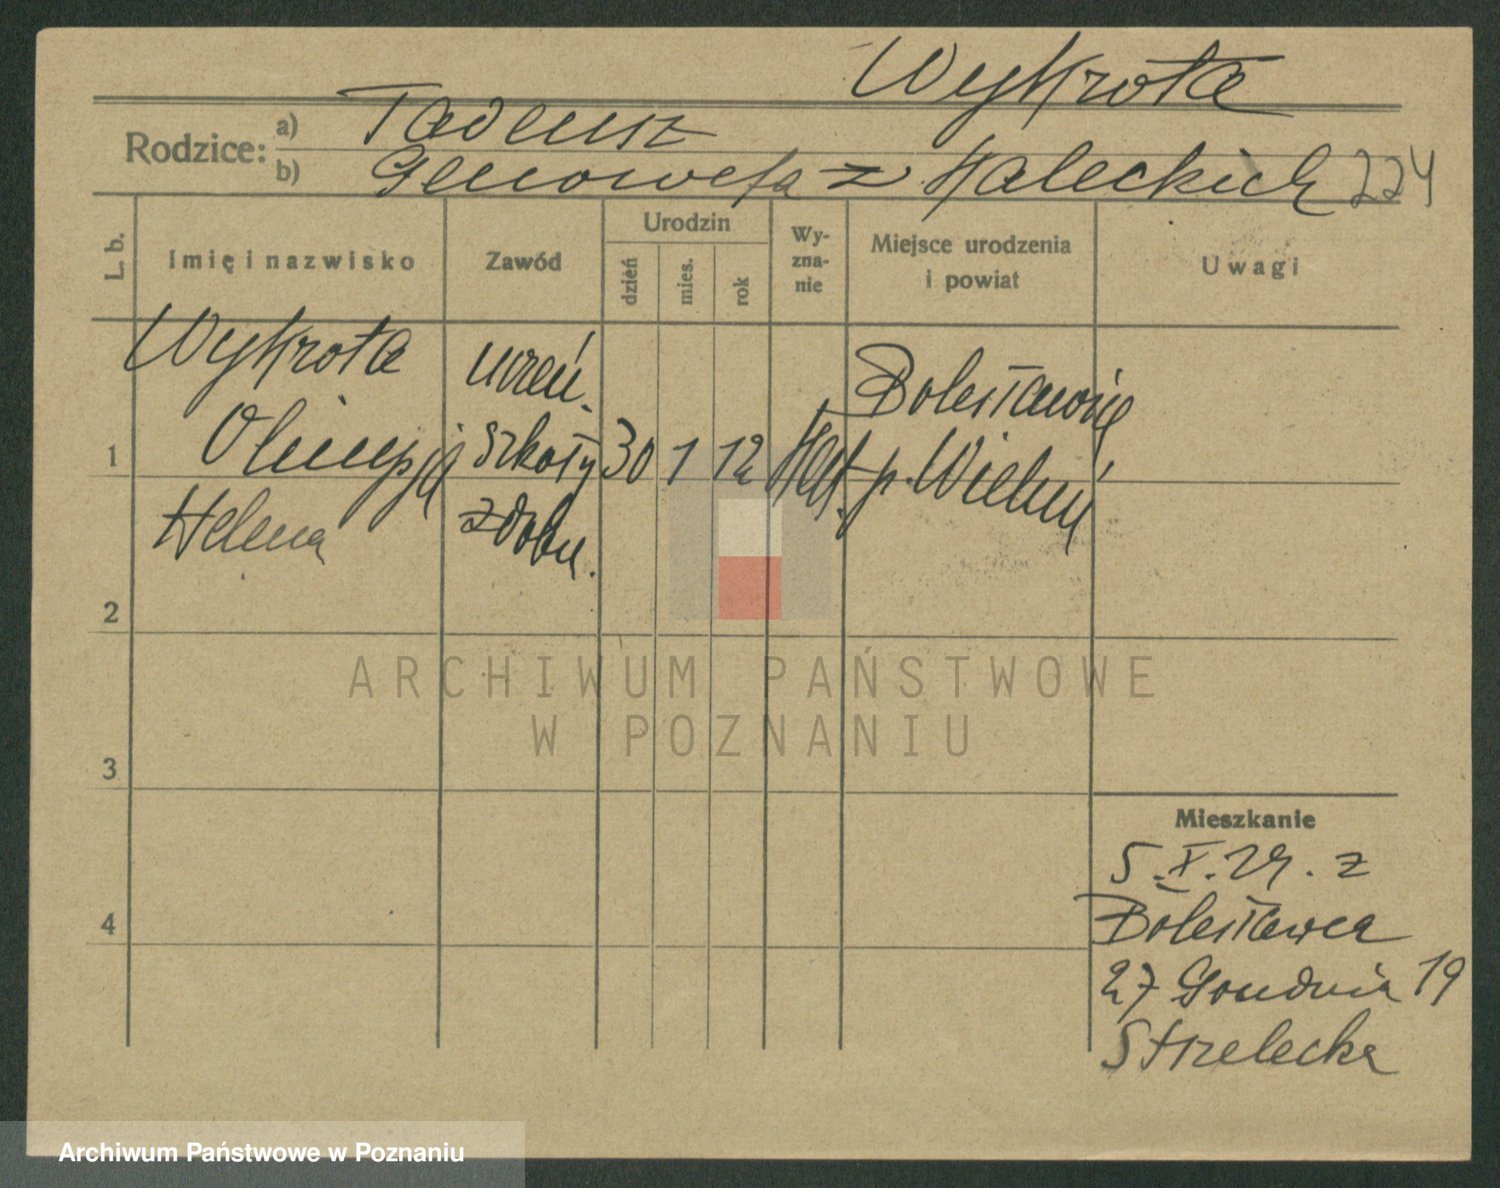 Wykrota
Rodzice: a) Tadeusz
b) Genowefa z Haleckich 224
L. b.
Imię i nazwisko
Zawód
Urodzin
dzień
mies.
rok
Wy-
zna-
nie
Miejsce urodzenia
i powiat
Uwagi
Wykrota
Olimpja
Helena
uczeń.
szkoły
zdobn.
30 1 12
Kat.
Bolesławiec
p. Wieluń
1
2
3
4
Mieszkanie
5.X.29. z
Bolesławca
27 Grudnia 19
Strzelecka
ARCHIWUM PAŃSTWOWE
W POZNANIU
Archiwum Państwowe w Poznaniu